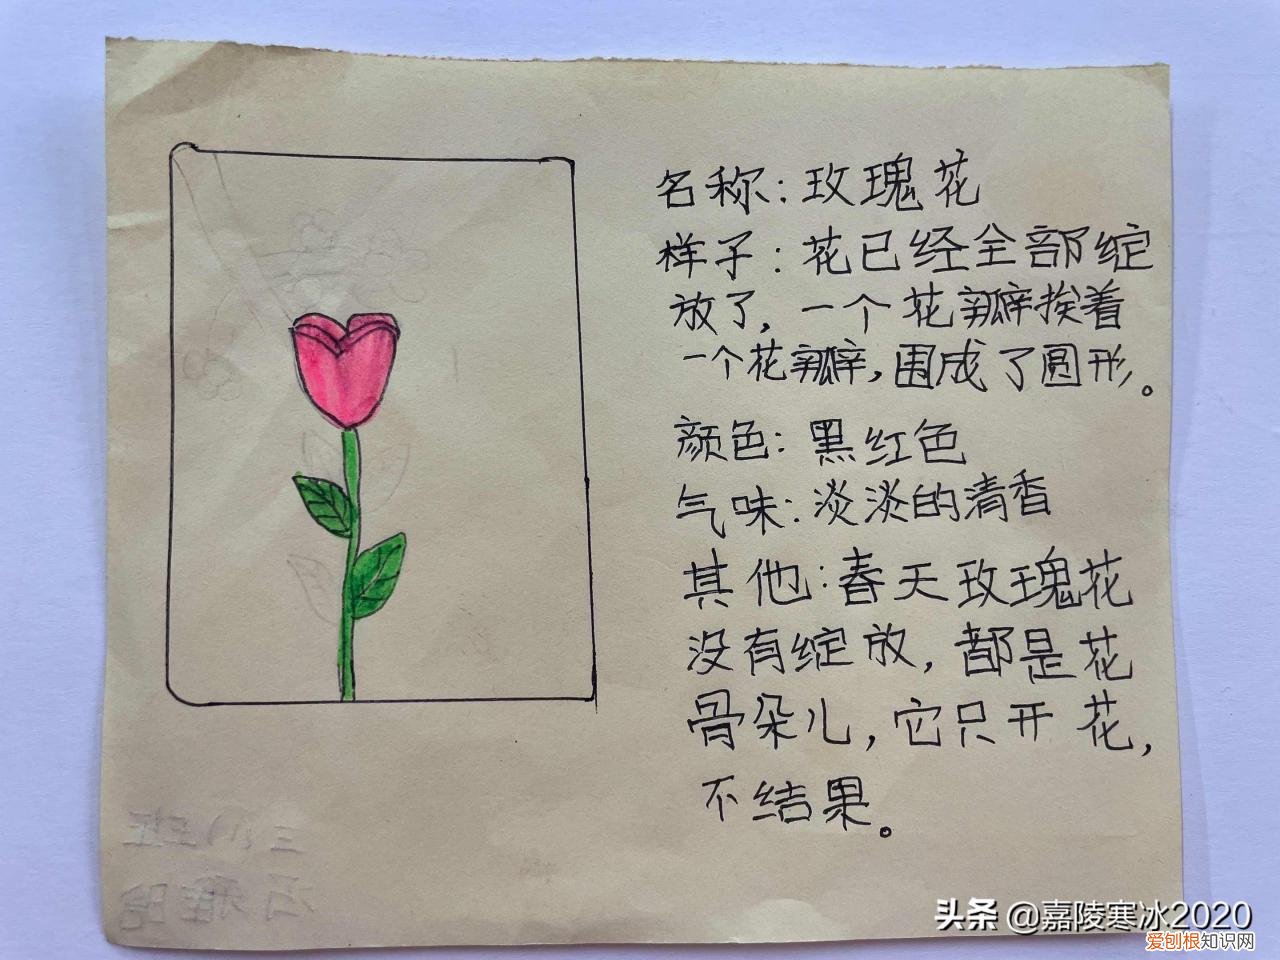 名称：玫瑰花
样子：花已经全部绽
放了，一个花瓣挨着
一个花瓣，围成了圆形。
颜色：黑红色
气味：淡淡的清香
其他：春天玫瑰花
没有绽放，都是花
骨朵儿，它只开花，
不结果。
头条 @嘉陵寒冰2020
爱刨根知识网